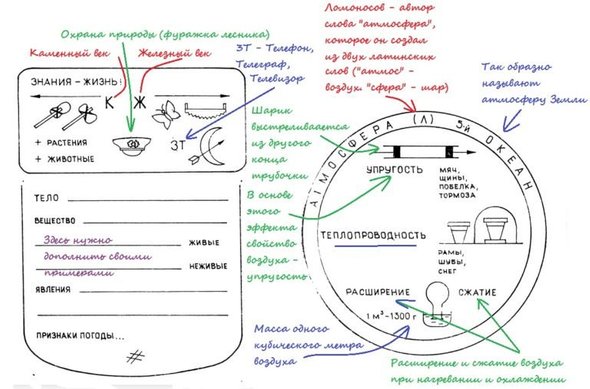 Охрана природы (фуражка лесника)
Каменный век
Железный век
ЗТ - Телефон,
Телеграф,
Телевизор
Ломоносов - автор
слова "атмосфера",
которое он создал
из двух латинских
слов ("атмос" -
воздух. "сфера" - шар)
Так образно
называют
атмосферу Земли
ЗНАНИЯ - ЖИЗНЬ!
К Ж
+ РАСТЕНИЯ
+ ЖИВОТНЫЕ
3Т
Шарик
выстреливается
из другого
конца
трубочки
В основе
этого
эффекта
свойство
воздуха -
упругость
АТМОСФЕРА (Л) 5й ОКЕАН
УПРУГОСТЬ
МЯЧ,
ШИНЫ,
ПОБЕЛКА,
ТОРМОЗА
ТЕПЛОПРОВОДНОСТЬ
РАМЫ,
ШУБЫ,
СНЕГ
РАСШИРЕНИЕ
СЖАТИЕ
1 м³-1300 г
ТЕЛО
ВЕЩЕСТВО
Здесь нужно
дополнить своими
примерами
ЖИВЫЕ
НЕЖИВЫЕ
ЯВЛЕНИЯ
ПРИЗНАКИ ПОГОДЫ...
Масса одного
кубического метра
воздуха
Расширение и сжатие воздуха
при нагревании и охлаждении